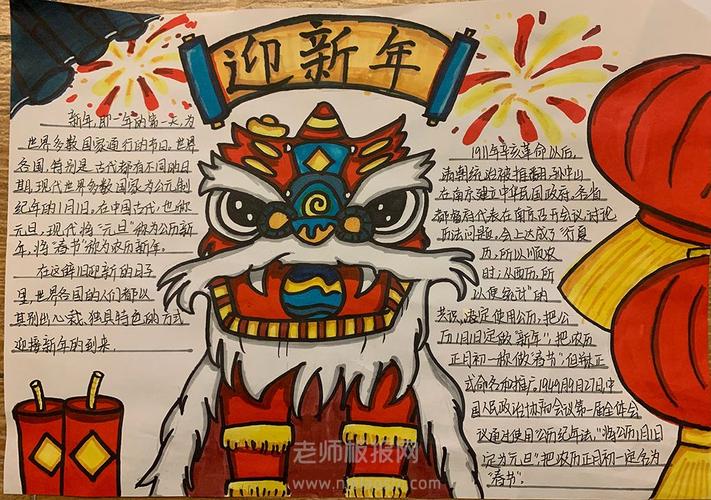 迎新年
新年,即一年的第一天,为
世界多数国家通行的节日。世界
各国,特别是古代都有不同的日
期,现代世界多数国家为公元制
纪年的1月1日。在中国古代,也称
元旦。现代将“元旦”称为公历新
年,将“春节”称为农历新年。
在这辞旧迎新的日子
里,世界各国的人们都以
其别出心裁、独具特色的方式
迎接新年的到来.
1911年辛亥革命以后,
清朝统治被推翻,孙中山
在南京建立中华民国政府。各省
都督府代表在南京召开会议,讨论
历法问题。会上达成了“行夏
历,所以顺农
时;从西历,所
以便统计”的
共识,决定使用公历,把公
历1月1日定做“新年”,把农历
正月初一称做“春节”,但
式命名和推广。1949年9月27日,中
国人民政治协商会议第一届全体会
议通过使用“公历纪年法”,“将公历1月1日
定为元旦”,把农历正月初一定名为
“春节”。
老师板报网